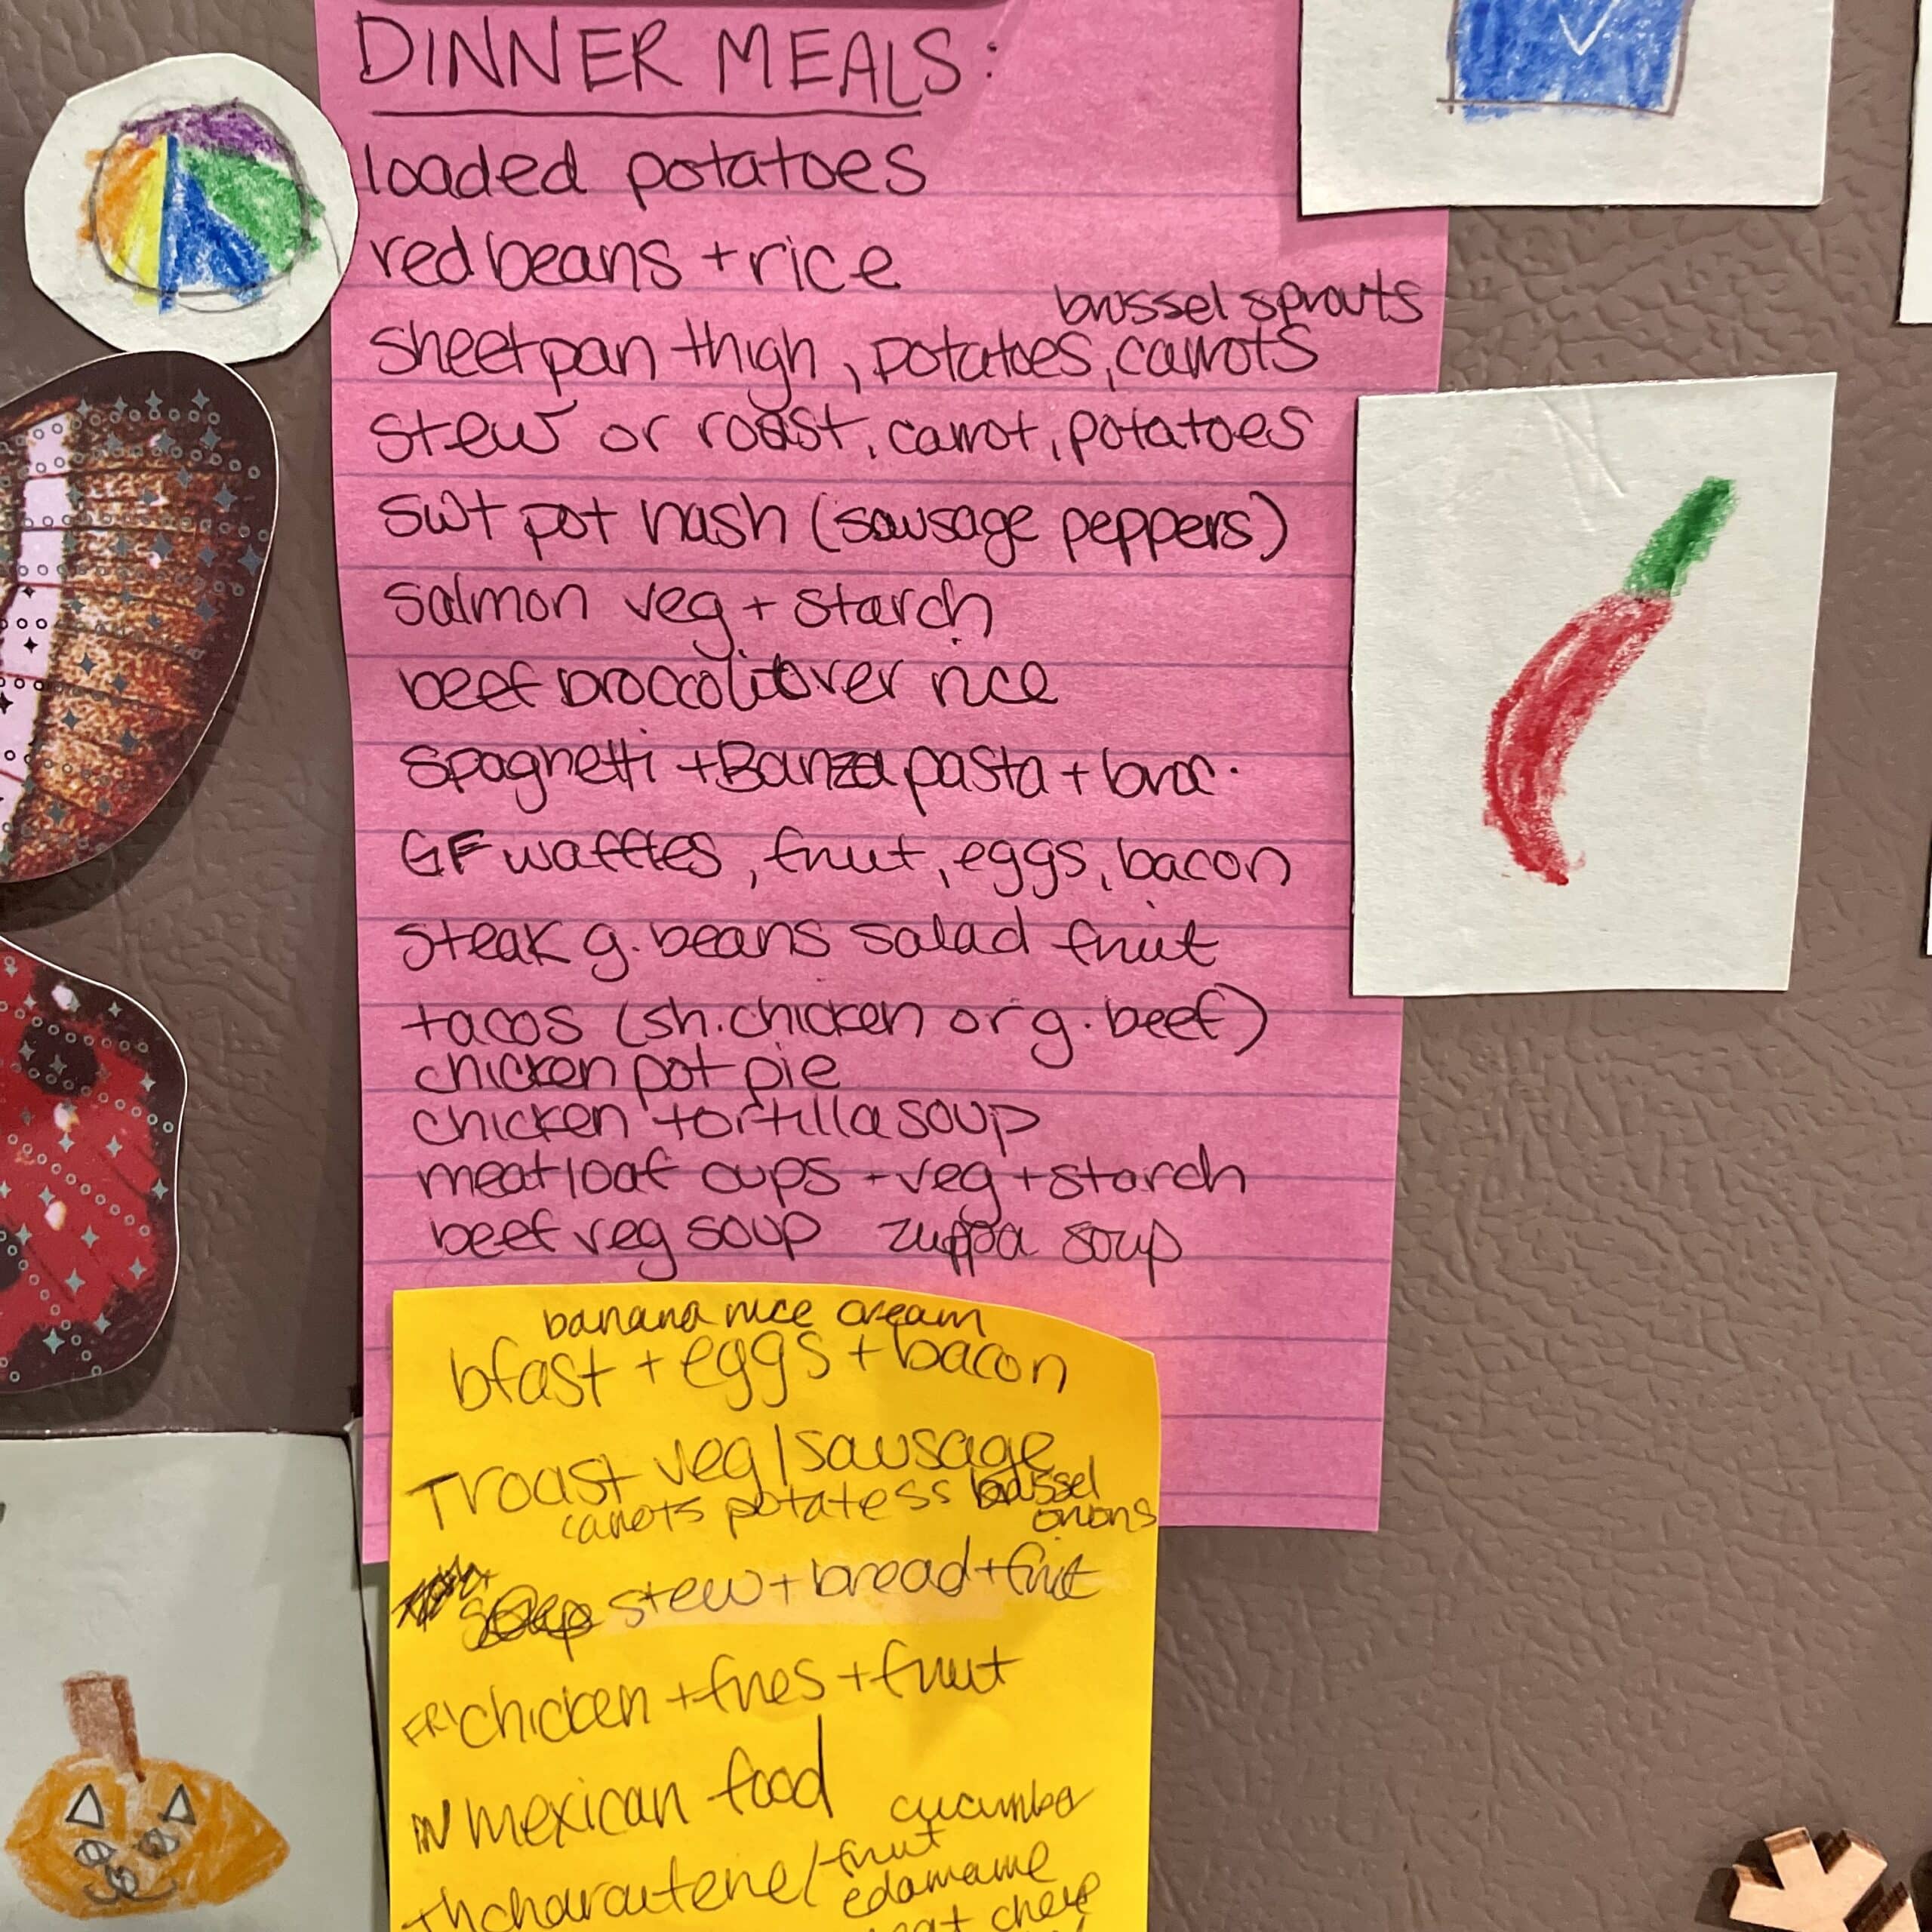 DINNER MEALS:
loaded potatoes
red beans + rice
brussel sprouts
sheetpan thigh, potatoes, carrots
stew or roast, carrot, potatoes
swt pot hash (sausage peppers)
salmon veg + starch
beef broccoli over rice
spaghetti + Banza pasta + broc.
GF waffles, fruit, eggs, bacon
steak g. beans salad fruit
tacos (sh. chicken or g. beef)
chicken pot pie
chicken tortilla soup
meatloaf cups + veg + starch
beef veg soup zuppa soup
banana nice cream
bfast + eggs + bacon
T roast veg/sausage
carrots potatoes brussel
onions
stew + bread + fruit
FRI chicken + fries + fruit
IN mexican food
cucumber
fruit
edamame